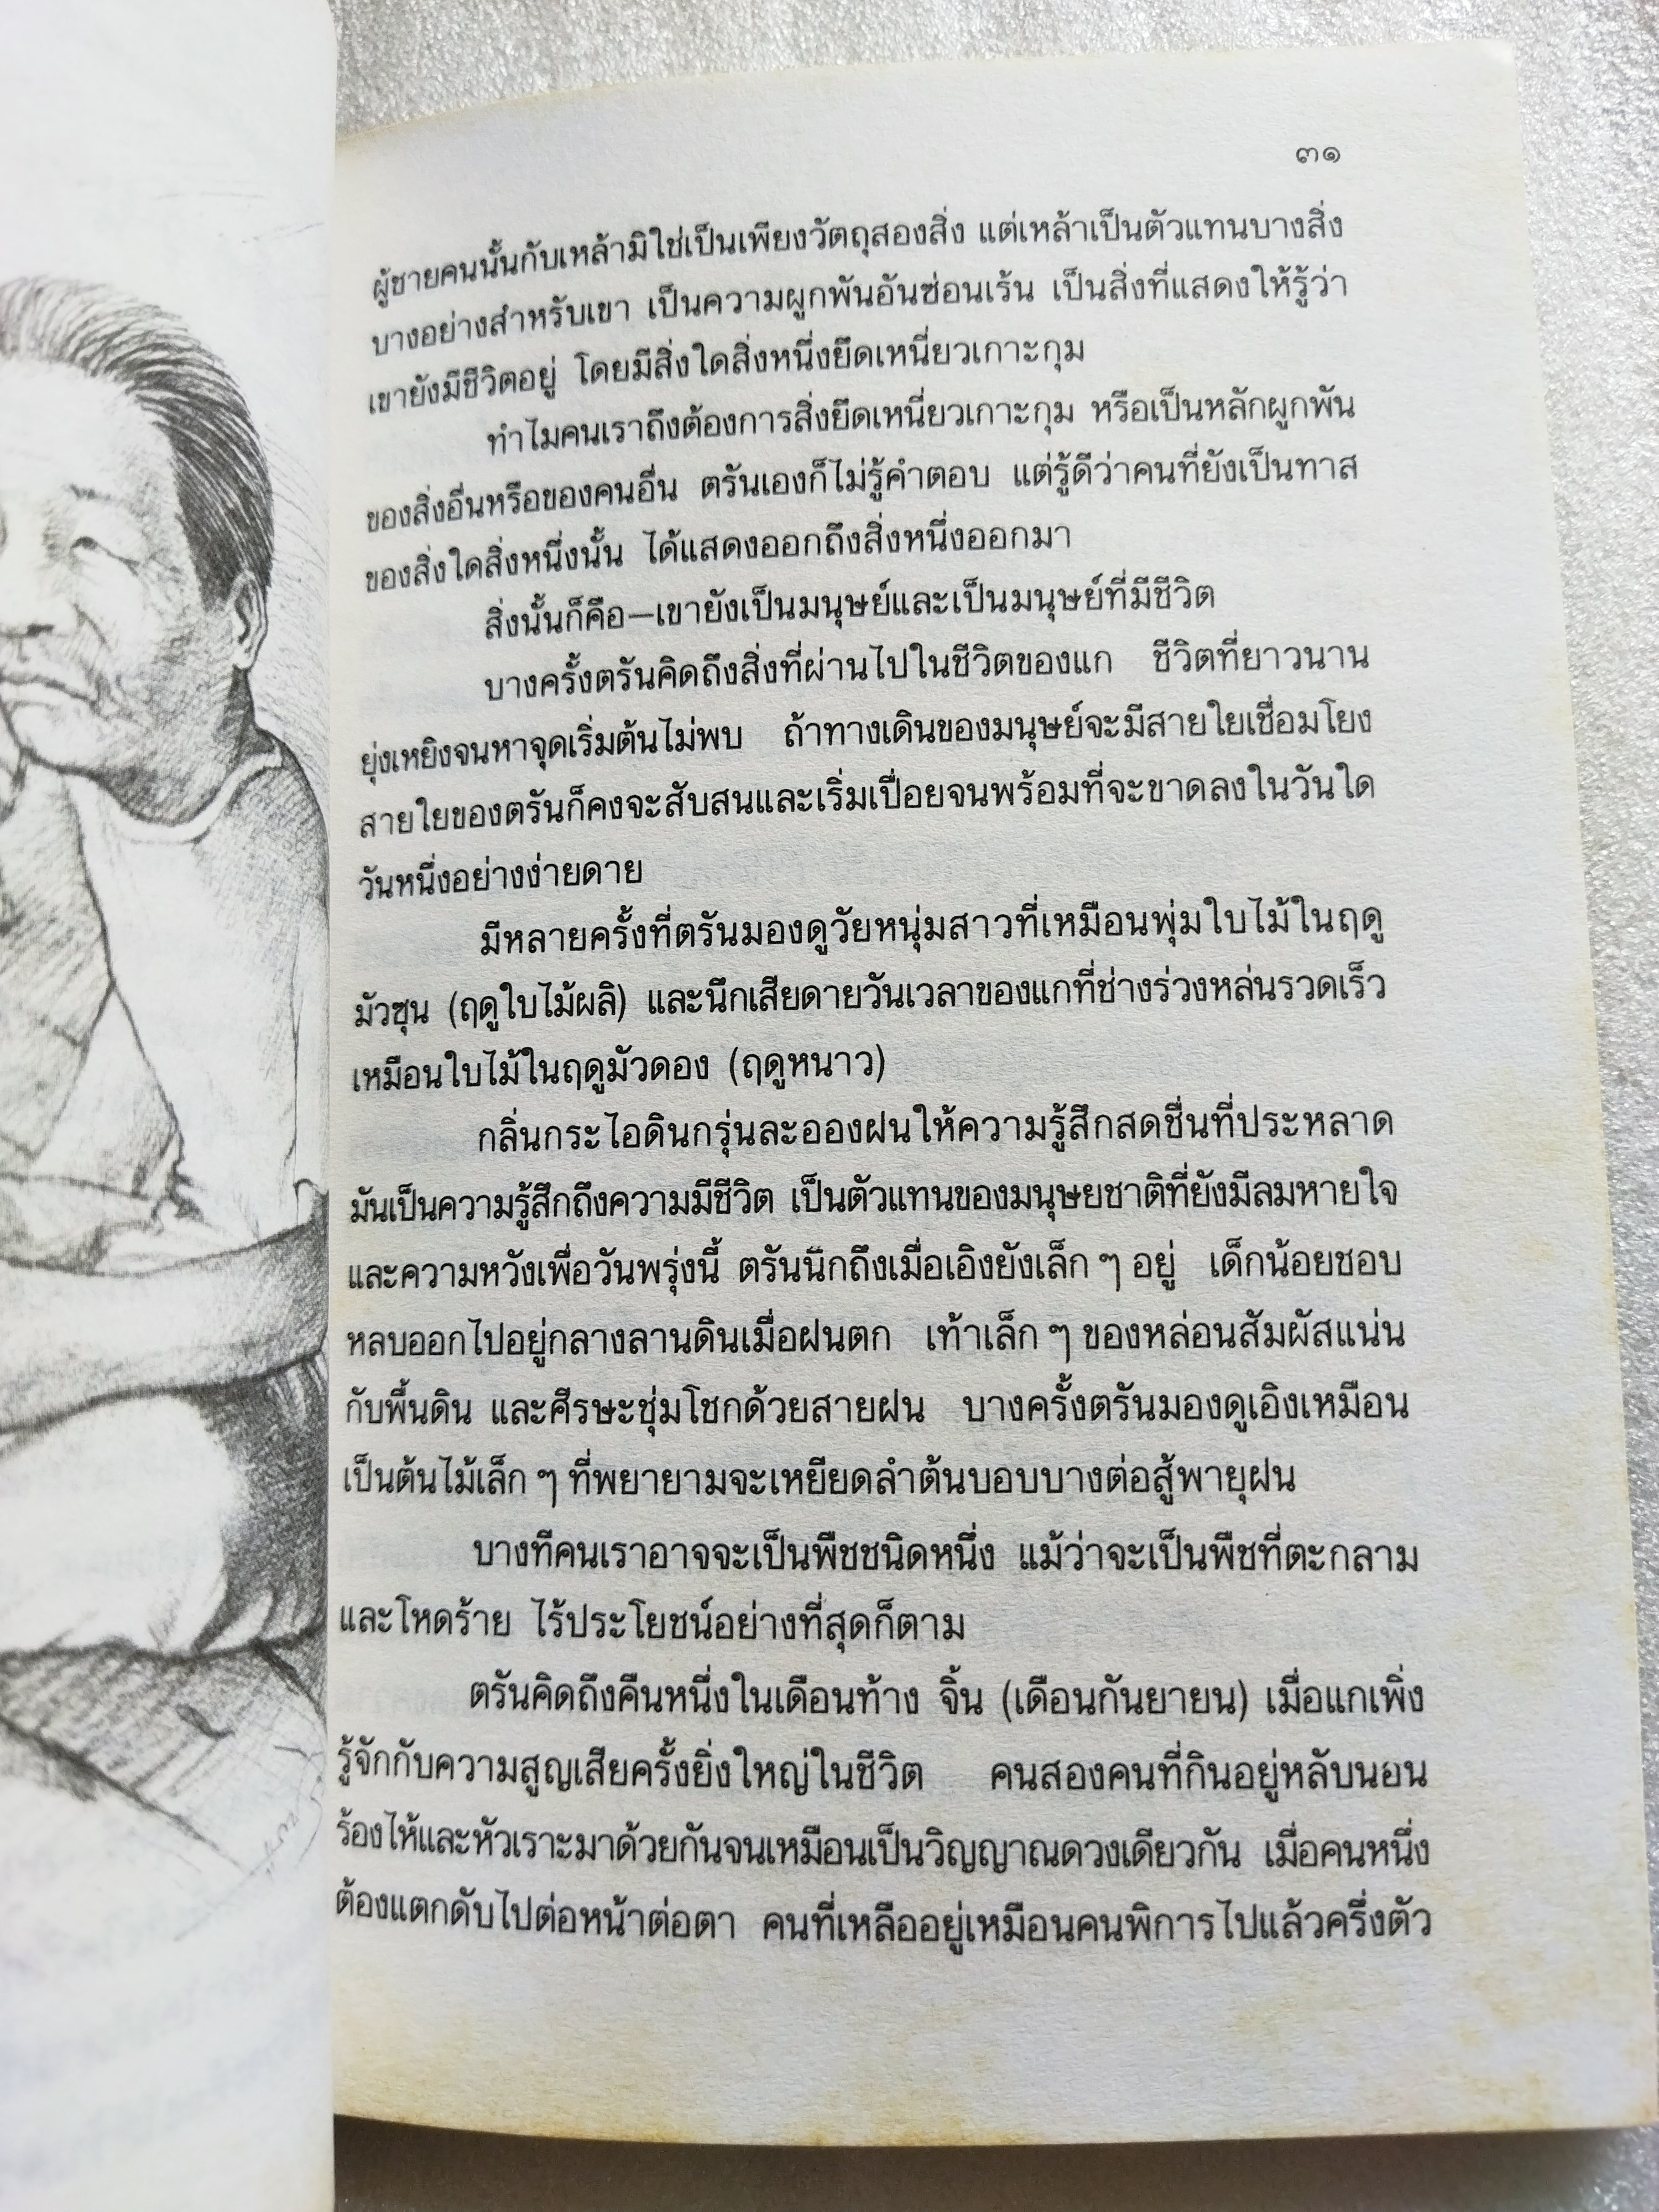 ๓๑
ผู้ชายคนนั้นกับเหล้ามิใช่เป็นเพียงวัตถุสองสิ่ง แต่เหล้าเป็นตัวแทนบางสิ่ง
บางอย่างสำหรับเขา เป็นความผูกพันอันซ่อนเร้น เป็นสิ่งที่แสดงให้รู้ว่า
เขายังมีชีวิตอยู่ โดยมีสิ่งใดสิ่งหนึ่งยึดเหนี่ยวเกาะกุม
ทำไมคนเราถึงต้องการสิ่งยึดเหนี่ยวเกาะกุม หรือเป็นหลักผูกพัน
ของสิ่งอื่นหรือของคนอื่น ตรันเองก็ไม่รู้คำตอบ แต่รู้ดีว่าคนที่ยังเป็นทาส
ของสิ่งใดสิ่งหนึ่งนั้น ได้แสดงออกถึงสิ่งหนึ่งออกมา
สิ่งนั้นก็คือ—เขายังเป็นมนุษย์และเป็นมนุษย์ที่มีชีวิต
บางครั้งตรันคิดถึงสิ่งที่ผ่านไปในชีวิตของแก ชีวิตที่ยาวนาน
ยุ่งเหยิงจนหาจุดเริ่มต้นไม่พบ ถ้าทางเดินของมนุษย์จะมีสายใยเชื่อมโยง
สายใยของตรันก็คงจะสับสนและเริ่มเปื่อยจนพร้อมที่จะขาดลงในวันใด
วันหนึ่งอย่างง่ายดาย
มีหลายครั้งที่ตรันมองดูวัยหนุ่มสาวที่เหมือนพุ่มใบไม้ในฤดู
มัวซุน (ฤดูใบไม้ผลิ) และนึกเสียดายวันเวลาของแกที่ช่างร่วงหล่นรวดเร็ว
เหมือนใบไม้ในฤดูมัวดอง (ฤดูหนาว)
กลิ่นกระไอดินกรุ่นละอองฝนให้ความรู้สึกสดชื่นที่ประหลาด
มันเป็นความรู้สึกถึงความมีชีวิต เป็นตัวแทนของมนุษยชาติที่ยังมีลมหายใจ
และความหวังเพื่อวันพรุ่งนี้ ตรันนึกถึงเมื่อเอิงยังเล็ก ๆ อยู่ เด็กน้อยชอบ
หลบออกไปอยู่กลางลานดินเมื่อฝนตก เท้าเล็ก ๆ ของหล่อนสัมผัสแน่น
กับพื้นดิน และศีรษะชุ่มโชกด้วยสายฝน บางครั้งตรันมองดูเอิงเหมือน
เป็นต้นไม้เล็ก ๆ ที่พยายามจะเหยียดลำต้นบอบบางต่อสู้พายุฝน
บางทีคนเราอาจจะเป็นพืชชนิดหนึ่ง แม้ว่าจะเป็นพืชที่ตะกลาม
และโหดร้าย ไร้ประโยชน์อย่างที่สุดก็ตาม
ตรันคิดถึงคืนหนึ่งในเดือนท้าง จิ้น (เดือนกันยายน) เมื่อแกเพิ่ง
รู้จักกับความสูญเสียครั้งยิ่งใหญ่ในชีวิต คนสองคนที่กินอยู่หลับนอน
ร้องไห้และหัวเราะมาด้วยกันจนเหมือนเป็นวิญญาณดวงเดียวกัน เมื่อคนหนึ่ง
ต้องแตกดับไปต่อหน้าต่อตา คนที่เหลืออยู่เหมือนคนพิการไปแล้วครึ่งตัว